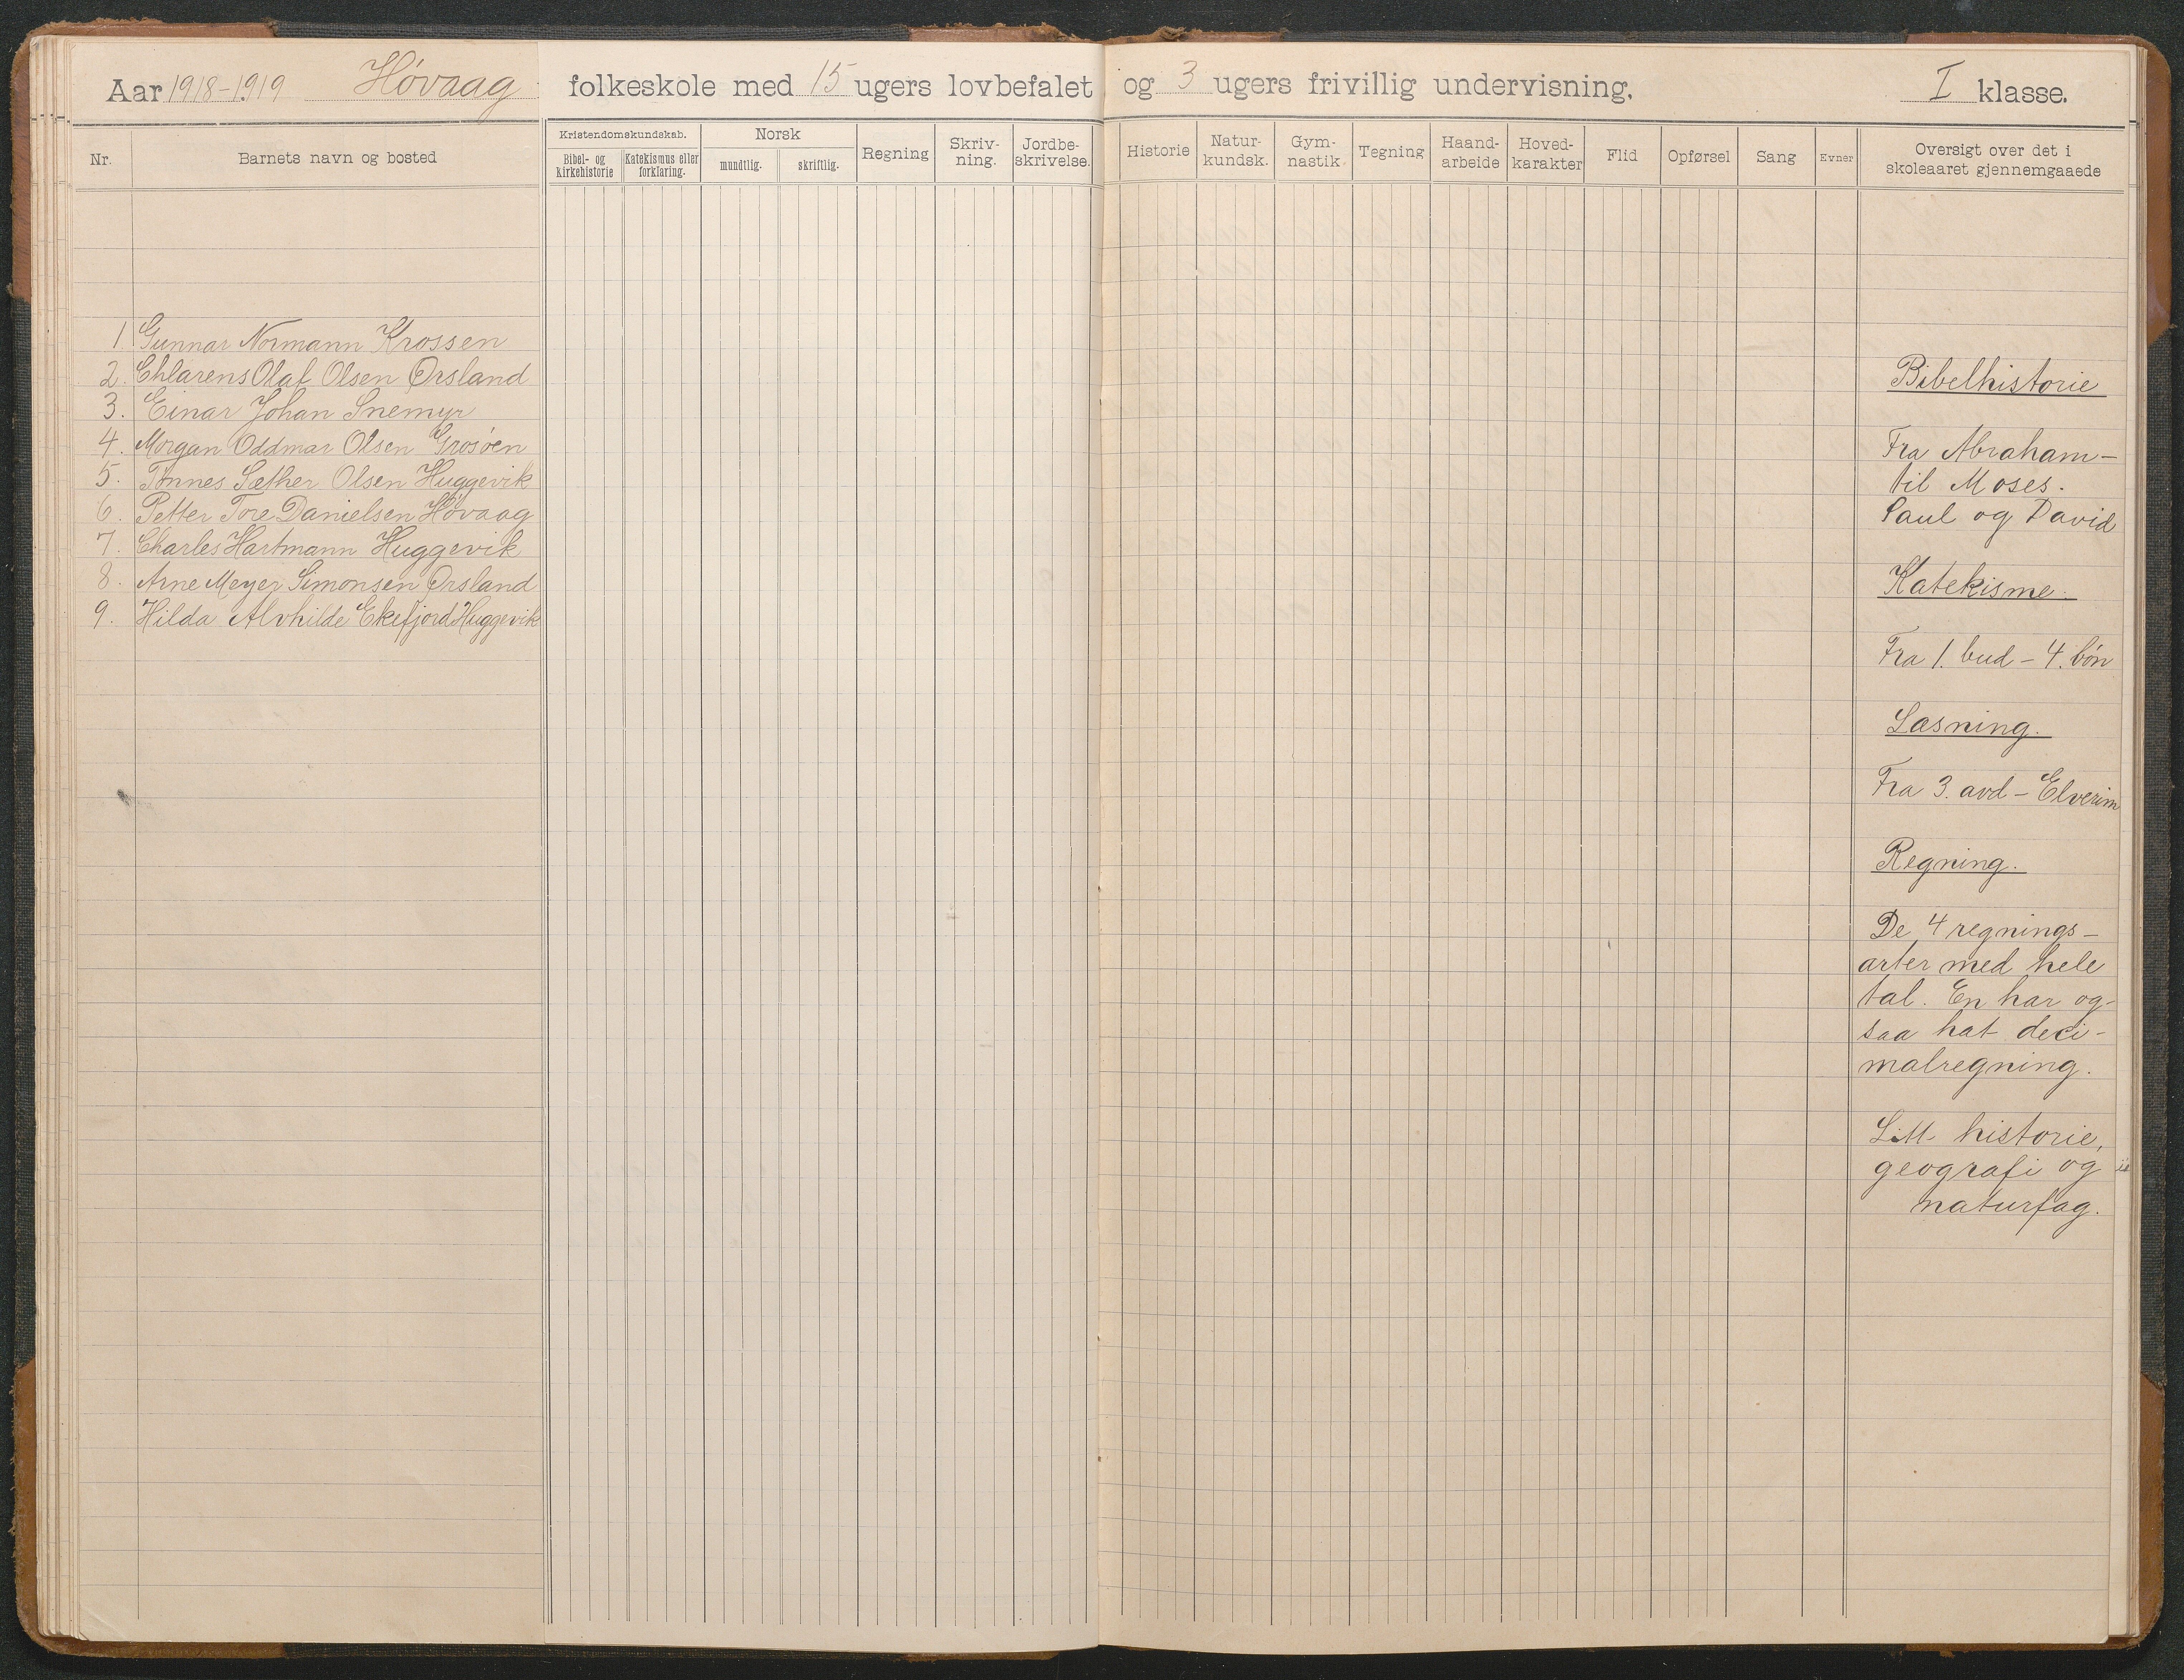 Aar 1918-1919 Høvaag folkeskole med 15 ugers lovbefalet og 3 ugers frivillig undervisning. I klasse.
Nr.
Barnets navn og bosted
Kristendomskundskab.
Bibel- og
Kirkehistorie
Katekismus eller
forklaring.
Norsk
mundtlig.
skriftlig.
Regning
Skriv-
ning.
Jordbe-
skrivelse.
Historie
Natur-
kundsk.
Gym-
nastik
Tegning
Haand-
arbeide
Hoved-
karakter
Flid
Opførsel
Sang
Evner
Oversigt over det i
skoleaaret gjennemgaaede
1. Gunnar Normann Krossen
2. Chlarens Olaf Olsen Ørsland
3. Einar Johan Snemyr
4. Morgan Oddmar Olsen Grosøen
5. Tønnes Sæther Olsen Huggevik
6. Petter Tore Danielsen Høvaag
7. Charles Hartmann Huggevik
8. Arne Meyer Simonsen Ørsland
9. Hilda Alvhilde Ekefjord Huggevik
Bibelhistorie
Fra Abraham-
til Moses.
Saul og David
Katekisme.
Fra 1. bud - 4. bøn
Læsning.
Fra 3. avd - Elverim
Regning.
De 4 regnings-
arter med hele
tal. En har og-
saa hat deci-
malregning.
Litt historie,
geografi og
naturfag.